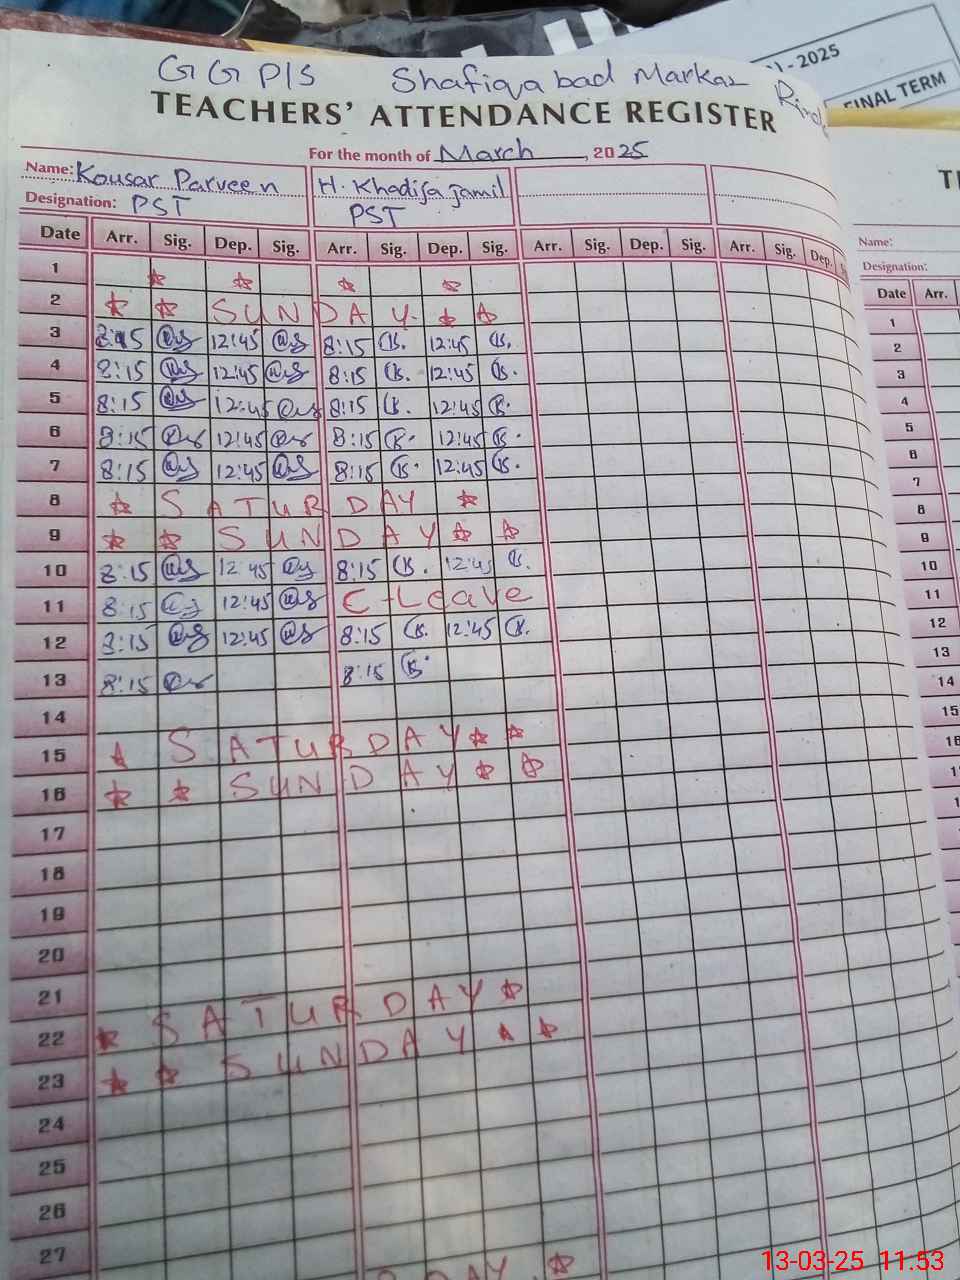 GGP/S Shafiqa bad Markaz
TEACHERS' ATTENDANCE REGISTER
For the month of March, 2025
Name: Kousar Parveen H. Khadija jamil
Designation: PST PST
Date Arr. Sig. Dep. Sig. Arr. Sig. Dep. Sig. Arr. Sig. Dep. Sig. Arr. Sig. Dep.
1
2 SUNDAY
3 8:15 12:45 8:15 K. 12:45 K.
4 8:15 12:45 8:15 K. 12:45 K.
5 8:15 12:45 8:15 K. 12:45 K.
6 8:15 12:45 8:15 K. 12:45 K.
7 8:15 12:45 8:15 K. 12:45 K.
8 SATURDAY
9 SUNDAY
10 8:15 12:45 8:15 K. 12:45 K.
11 8:15 12:45 C-Leave
12 8:15 12:45 8:15 K. 12:45 K.
13 8:15 8:15 K.
14
15 SATURDAY
16 SUNDAY
17
18
19
20
21
22 SATURDAY
23 SUNDAY
24
25
26
27
- 2025
FINAL TERM
Name:
Designation:
Date Arr.
1
2
3
4
5
6
7
8
9
10
11
12
13
14
15
16
13-03-25 11.53